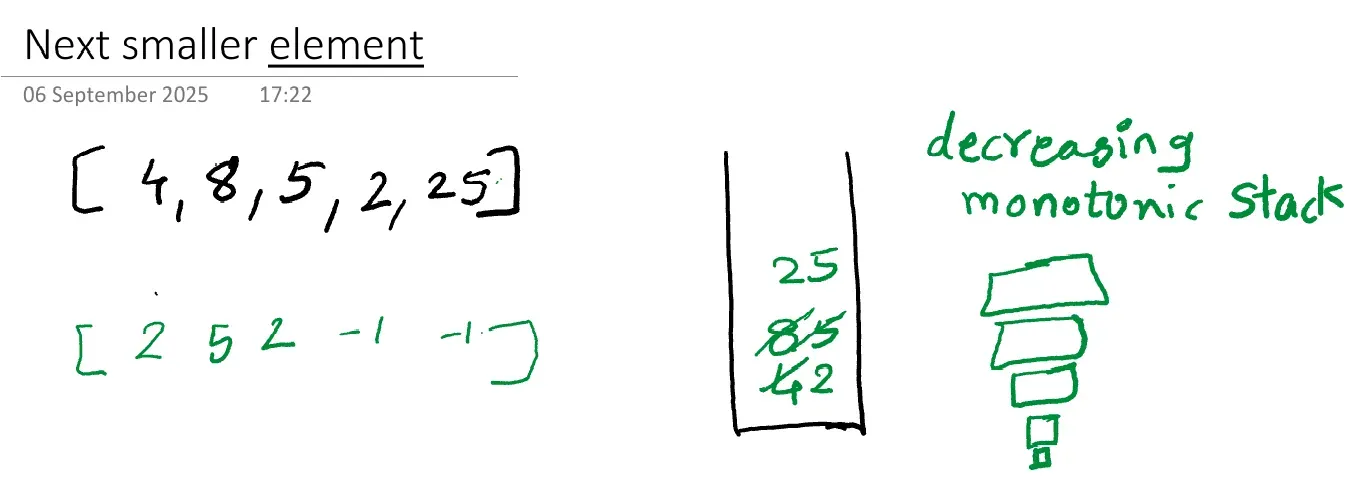 Next smaller element
06 September 2025 17:22
[ 4, 8, 5, 2, 25]
[ 2 5 2 -1 -1 ]
25
85
42
decreasing
monotonic stack